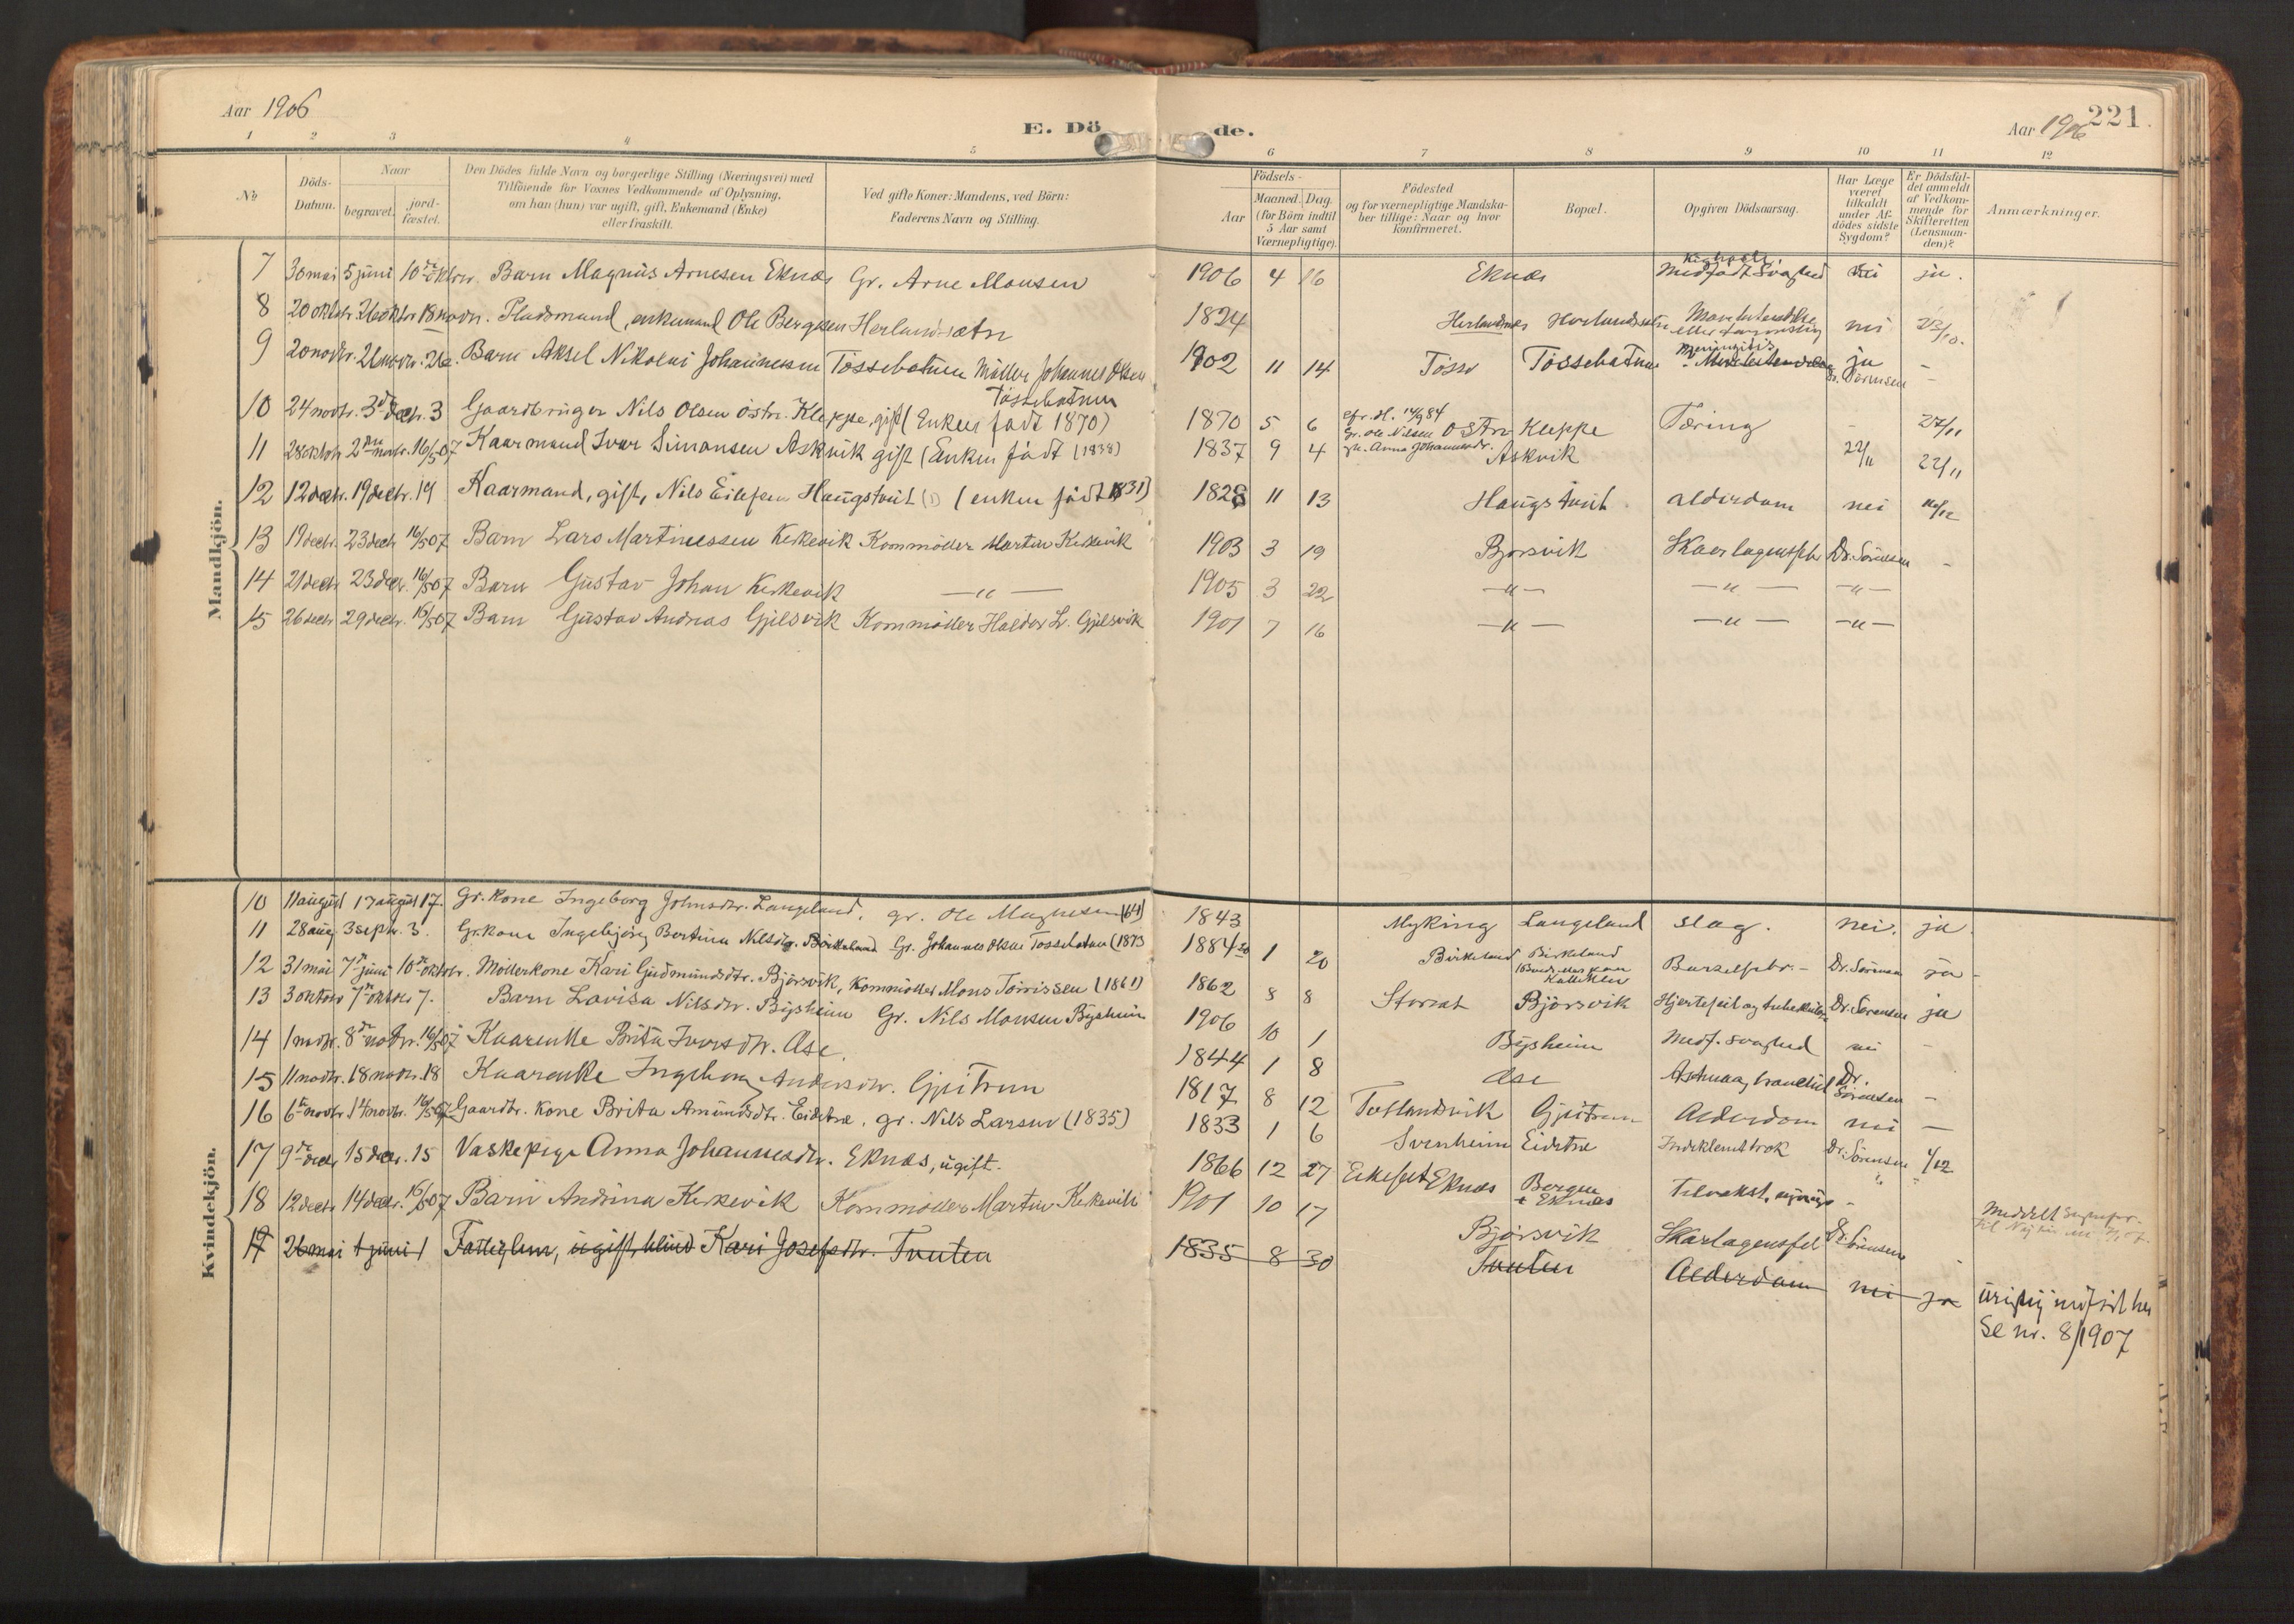 Aar 1906
E. Dö de.
Aar 1906
221.
1 2 3 4 5 6 7 8 9 10 11 12
№
Döds-Datum.
Naar
begravet.
jord-fæstet.
Den Dödes fulde Navn og borgerlige Stilling (Næringsvei) med
Tilföiende for Voxnes Vedkommende af Oplysning,
om han (hun) var ugift, gift, Enkemand (Enke)
eller fraskilt.
Ved gifte Koner: Mandens, ved Börn:
Faderens Navn og Stilling.
Födsels-
Aar
Maaned. Dag.
(for Börn indtil
5 Aar samt
Værnepligtige).
Födested
og for værnepligtige Mandska-
ber tillige: Naar og hvor
konfirmeret.
Bopæl.
Opgiven Dödsaarsag.
Har Læge
været
tilkaldt
under Af-
dödes sidste
Sygdom?
Er Dödsfal-
det anmeldt
af Vedkom-
mende for
Skifteretten
(Lensman-
den)?
Anmærkninger.
Mandkjön.
7 30 mai 5 juni 10de oktbr. Barn Magnus Arnesen Eknæs Gr. Arne Monsen 1906 4 16 Eknæs Medfødt Svaghed nei ja.
8 20 oktbr. 26 oktbr 18 novbr. Pladsmand, enkemand Ole Bergesen Herlandsætre 1824 Herlandnes Herlandssætre nei 23/10.
9 20 novbr. 26 novbr. 26. Barn Aksel Nikolai Johannessen Tössebotnen Möller Johannes Olsen Tössebotnen 1902 11 14 Tösse Tössebotnen Meningitis ja Dr. Sörensen -
10 24 novbr. 3de decbr. 3 Gaardbruger Nils Olsen östre Kleppe, gift (Enken födt 1870) 1870 5 6 14/9 84 Gr. Ole Nilsen Östre Kleppe Tæring - 27/11
11 28 oktbr 2den novbr. 16/5 07 Kaarmand Ivar Simonsen Askvik gift (Enken födt (1838) 1837 9 4 Anna Johannesdr. Askvik 22/11 22/11
12 12 decbr. 19 decbr. 19 Kaarmand, gift, Nils Eilefsen Haugstveit (enken födt 1831) 1828 11 13 Haugstveit alderdom nei 16/12
13 19 decbr. 23 decbr 16/5 07 Barn Lars Martinessen Kirkevik Kornmöller Martin Kirkevik 1903 3 19 Bjørsvik Skarlagensfeb Dr. Sörensen -
14 21 decbr 23 decbr. 16/5 07 Barn Gustav Johan Kirkevik —"— 1905 3 22 —"— —"— —"—
15 26 decbr 29 decbr. 16/5 07 Barn Gustav Andreas Gjelsvik Kornmöller Haldor L. Gjelsvik 1901 7 16 —"— —"— —"—
Kvindekjön.
10 11 august 17 august 17. Gr. kone Ingeborg Johnsdtr. Langeland. gr. Ole Magnesen (64) 1843 Myking Langeland slag. nei. ja.
11 28 aug. 3 septr. 3. Gr. kone Ingebjörg Bertina Nilsdtr. Birkeland Gr. Johannes Olsen Tössebotnen (1873 1884 1 20 Birkeland Birkeland Barselfeber - Dr. Sörensen ja -
12 31 mai 7de juni 10de oktbr. Möllerkone Kari Gudmundsdtr. Björsvik, Kornmöller Mons Torrissen (1861) 1862 8 8 Storset Björsvik Hjertefeil og tuberkulose Dr. Sörensen ja
13 3 oktobr 7de oktobr 7. Barn Lovisa Nilsdtr. Bysheim Gr. Nils Monsen Bysheim 1906 10 1 Bysheim Medf. svaghed nei -
14 1 novbr. 8de novbr. 16/5 07 Kaarenke Brita Iversdtr. Ase. 1844 1 8 Ase Astma og bronchit Dr. Sörensen -
15 11 novbr. 18 novbr. 18 Kaarenke Ingeborg Andersdtr. Gjeitrem 1817 8 12 Totlandsvik Gjeitrem Alderdom nei —
16 6te novbr 14 novbr. 16/5 07 Gaardbr. kone Brita Amundsdtr. Eidetræ. gr. Nils Larsen (1835) 1833 1 6 Svenheim Eidetræ Indeklemt brok Dr. Sörensen 1/12
17 9de decbr 15 decbr. 15 Vaskepige Anna Johannesdtr. Eknæs, ugift. 1866 12 27 Eikefet Eknæs Bergen + Eknæs "
18 12 decbr 14 decbr. 16/5 07 Barn Andrina Kirkevik Kornmöller Martin Kirkevik 1901 10 17 Björsvik Skarlagensfeb Dr. Sörensen
19 26 mai 1 juni 1 Fattiglem, ugift, blind Kari Josefsdtr. Tveiten 1835 8 30 Tveiten Alderdom nei ja urigtig indført her
Se nr. 8/1907